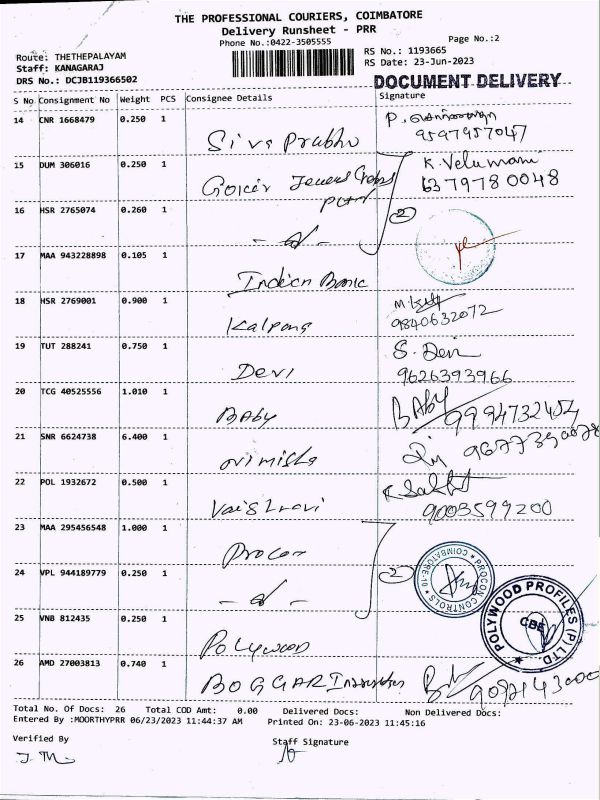 THE PROFESSIONAL COURIERS, COIMBATORE
Delivery Runsheet - PRR
Phone No.:0422-3505555
Page No.:2
Route: THETHEPALAYAM
Staff: KANAGARAJ
DRS No.: DCJB119366502
RS No.: 1193665
RS Date: 23-Jun-2023
DOCUMENT DELIVERY
S No Consignment No Weight PCS Consignee Details Signature
14 CNR 1668479 0.250 1 Siva Prabhu 9597957047
15 DUM 306016 0.250 1 K. Velumani 6379780048
16 HSR 2765074 0.260 1 2
17 MAA 943228898 0.105 1 Indian Bank
18 HSR 2769001 0.900 1 Kalpana 9840632072
19 TUT 288241 0.750 1 Devi S. Devi 9626393966
20 TCG 40525556 1.010 1 BABY BABy
21 SNR 6624738 6.400 1
22 POL 1932672 0.500 1 Vaishnavi 9003599200
23 MAA 295456548 1.000 1 Procon
24 VPL 944189779 0.250 1 2
PROCON CONTROLS * COIMBATORE-10 *
25 VNB 812435 0.250 1 Polywood
POLYWOOD PROFILES (P) LTD. CBE
26 AMD 27003813 0.740 1
Total No. Of Docs: 26 Total COD Amt: 0.00 Delivered Docs: Non Delivered Docs:
Entered By :MOORTHYPRR 06/23/2023 11:44:37 AM Printed On: 23-06-2023 11:45:16
Verified By
Staff Signature